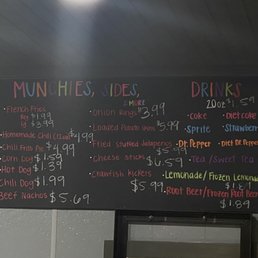 MUNCHIES, SIDES,
& MORE
• French Fries
Reg $1.99
$3.99
• Homemade Chili (12oz) $4.99
• Chili Frito Pie $4.99
• Corn Dog $1.59
• Hot Dog $1.39
Chili Dog $1.99
Beef Nachos $5.69
• Onion Rings $3.99
• Loaded Potato $5.99
• Fried Stuffed Jalapenos $5.99
• Cheese Sticks $6.59
• Crawfish Kickers $5.99
DRINKS
20oz $1.59
• Coke
• Diet Coke
• Sprite
• Strawberry
• Dr. Pepper
• Diet Dr. Pepper
• Tea/Sweet Tea
Lemonade/Frozen Lemonade
$1.89
Root Beer/Frozen Root Beer
$1.89